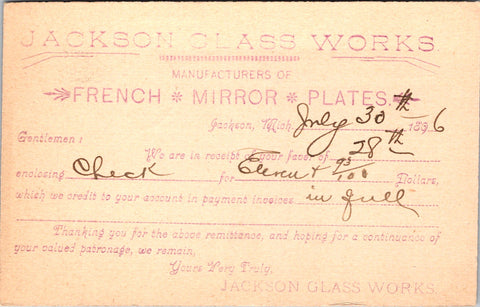 JACKSON GLASS WORKS.
MANUFACTURERS OF
FRENCH * MIRROR * PLATES.
Jackson, Mich. July 30th 1896
Gentlemen:
We are in receipt of your favor of 28th
enclosing Check for Eleven + 93/100 Dollars,
which we credit to your account in payment invoices in full
Thanking you for the above remittance, and hoping for a continuance of
your valued patronage, we remain,
Yours Very Truly,
JACKSON GLASS WORKS.